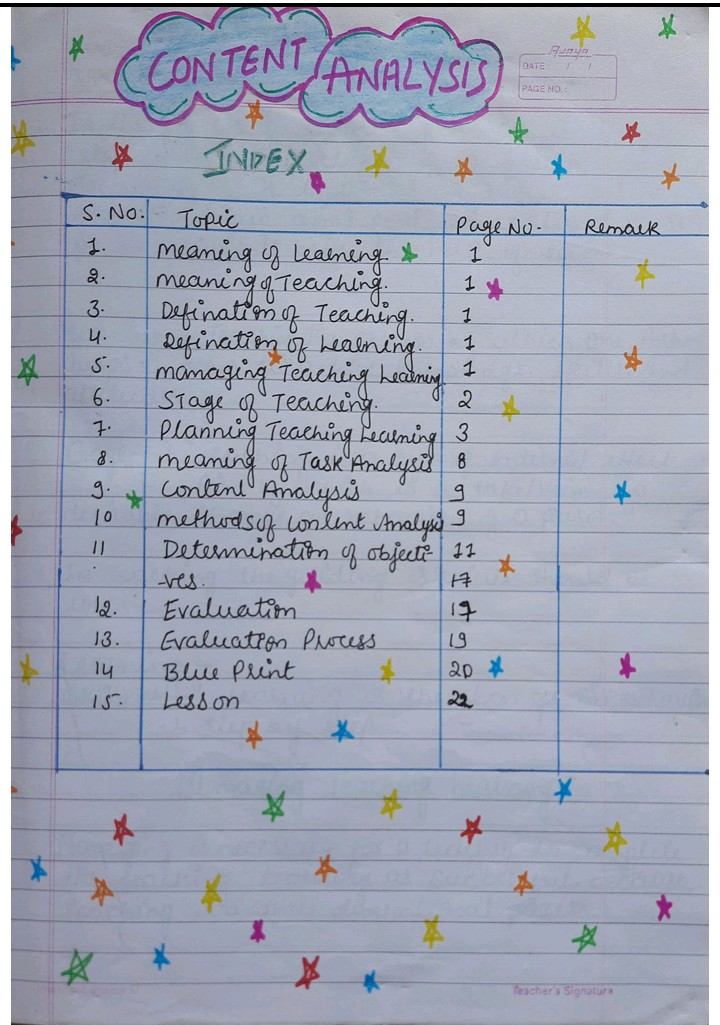 CONTENT ANALYSIS
Avaya
DATE / /
PAGE NO.:
INDEX
S. No. Topic Page No. Remark
1. meaning of Learning. 1
2. meaning of Teaching. 1
3. Defination of Teaching. 1
4. Defination of Learning. 1
5. managing Teaching Learning. 1
6. Stage of Teaching. 2
7. Planning Teaching Learning 3
8. meaning of Task Analysis 8
9. Content Analysis 9
10 methods of Content Analysis 9
11 Determination of objecti- 11
-ves. 17
12. Evaluation 17
13. Evaluation Process 19
14 Blue Print 20
15. Lesson 22
Teacher's Signature